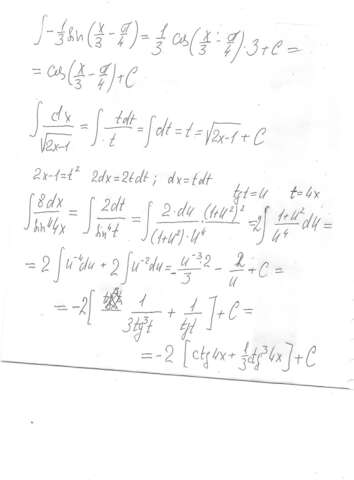 ∫ -1/3 sin(x/3 - π/4) = 1/3 cos(x/3 - π/4)·3 + C =
= cos(x/3 - π/4) + C
∫ dx/√(2x-1) = ∫ tdt/t = ∫ dt = t = √(2x-1) + C
2x-1=t² 2dx=2tdt ; dx=tdt
tgt=u t=4x
∫ 8dx/sin⁴4x = ∫ 2dt/sin⁴t = ∫ 2·du·(1+u²)²/((1+u²)·u⁴) = 2∫ (1+u²)/u⁴ du =
= 2∫u⁻⁴du + 2∫u⁻²du = -u⁻³·2/3 - 2/u + C =
= -2[1/(3tg³t) + 1/tgt] + C =
= -2 [ctg4x + 1/3 ctg³4x] + C